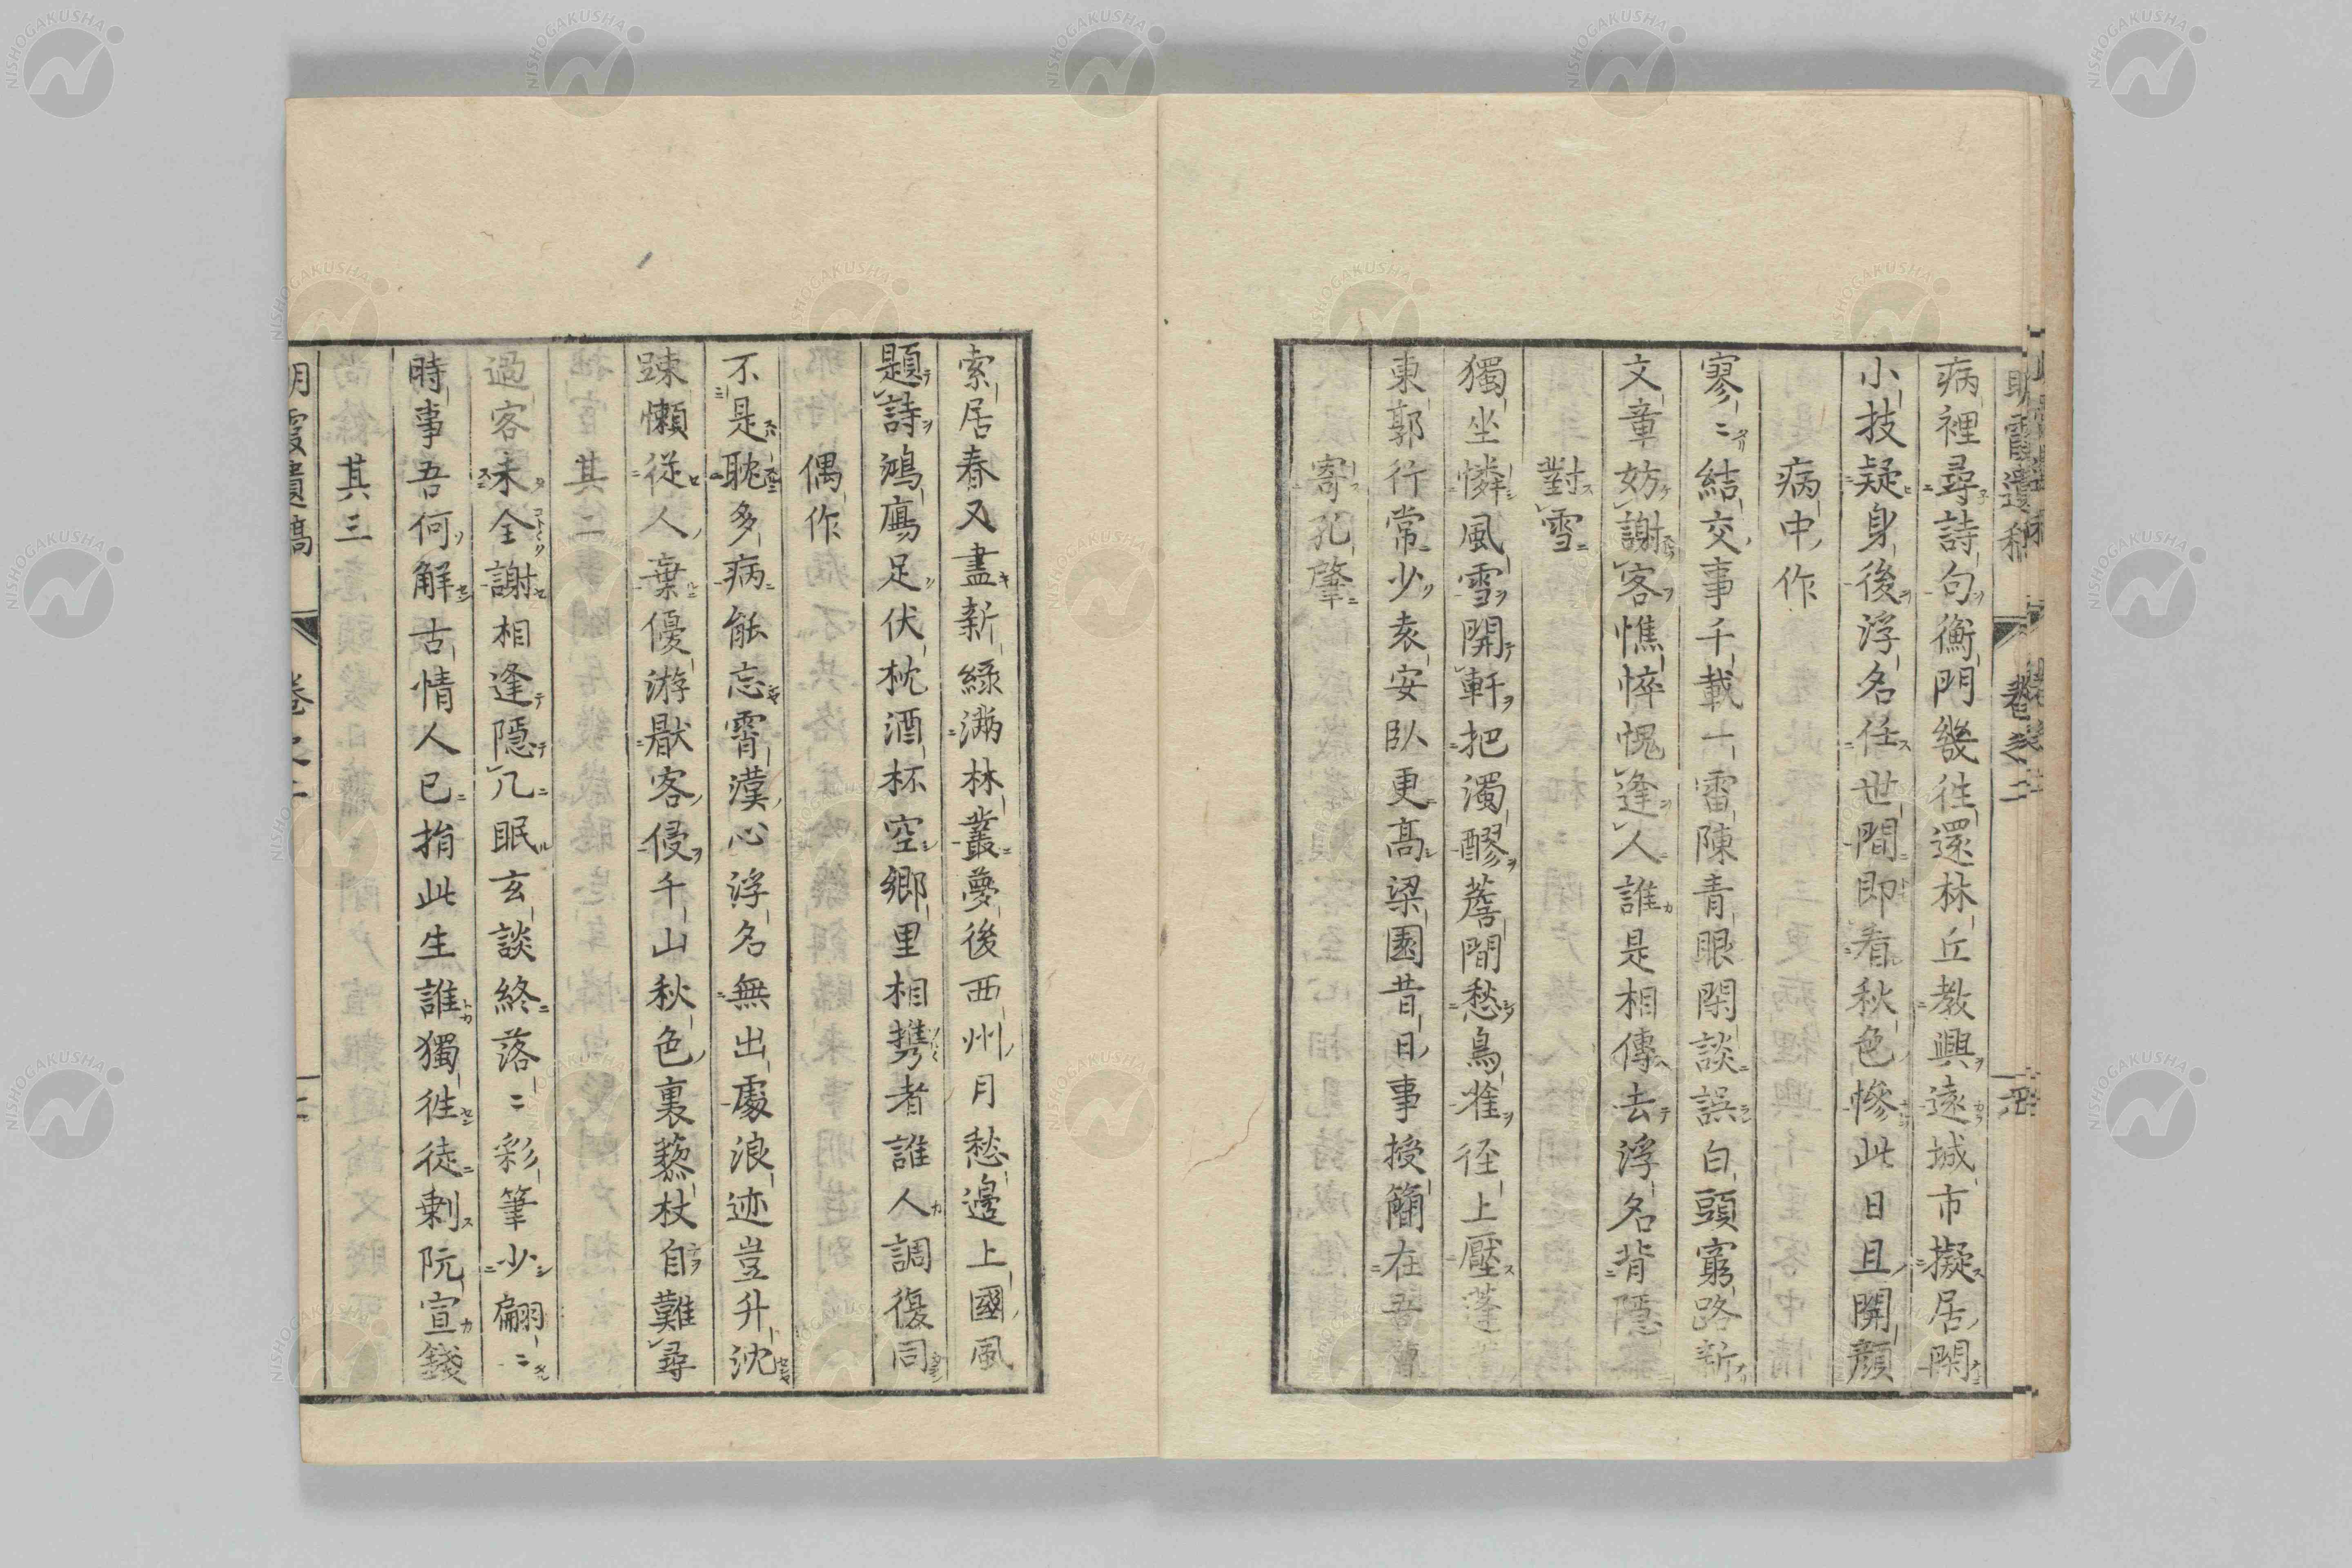 病裡尋詩句衡門幾往還林丘教興遠城市擬居閑
小技疑身後浮名任世間即看秋色慘此日且開顏
病中作
寥〻結交事千載一雷陳青眼閑談誤白頭窮路新
文章妨謝客憔悴愧逢人誰是相傳去浮名背隱
對雪
獨坐憐風雪開軒把濁醪簷間愁鳥雀徑上壓蓬
東郭行常少袁安臥更高梁園昔日事授簡在吾曹
寄孔肇
索居春又盡新綠滿林叢夢後西州月愁邊上國風
題詩鴻鴈足伏枕酒杯空鄉里相攜者誰人調復同
偶作
不是耽多病能忘霄漢心浮名無出處浪迹豈升沈
踈懶從人棄優游厭客侵千山秋色裏藜杖自難尋
其二
過客未全謝相逢隱几眠玄談終落〻彩筆少翩〻
時事吾何解古情人已捐此生誰獨往徒剩阮宣錢
其三
明霞遺稿 卷之二